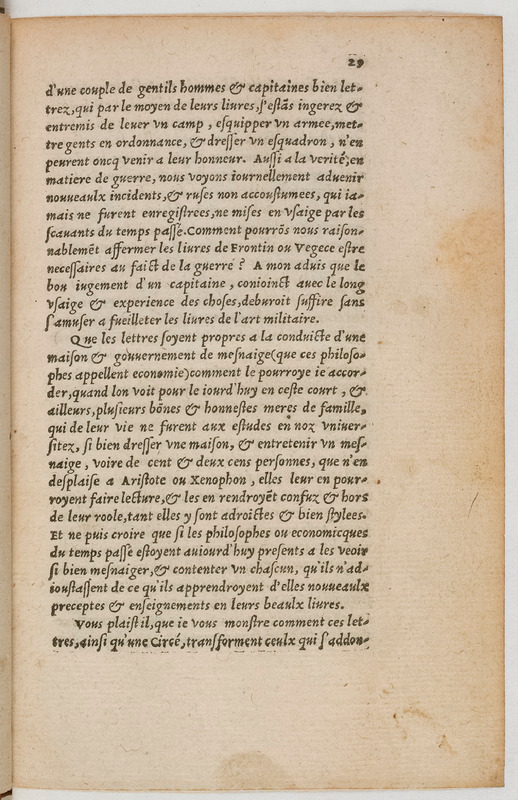 29
d'une couple de gentils hommes & capitaines bien let-
trez, qui par le moyen de leurs liures, s'estãs ingerez &
entremis de leuer vn camp, esquipper vn armee, met-
tre gents en ordonnance, & dresser vn esquadron, n'en
peurent oncq venir a leur honneur. Aussi a la verité, en
matiere de guerre, nous voyons iournellement aduenir
nouueaulx incidents, & ruses non accoustumees, qui ia-
mais ne furent enregistrees, ne mises en vsaige par les
scauants du temps passé. Comment pourrõs nous raison-
nablemẽt affermer les liures de Frontin ou Vegece estre
necessaires au faict de la guerre? A mon aduis que le
bon iugement d'un capitaine, conioinct auec le long
vsaige & experience des choses, deburoit suffire sans
s'amuser a fueilleter les liures de l'art militaire.
Que les lettres soyent propres a la conduicte d'une
maison & gouuernement de mesnaige (que ces philoso-
phes appellent economie) comment le pourroye ie accor-
der, quand lon voit pour le iourd'huy en ceste court, &
ailleurs, plusieurs bõnes & honnestes meres de famille,
qui de leur vie ne furent aux estudes en noz vniuer-
sitez, si bien dresser vne maison, & entretenir vn mes-
naige, voire de cent & deux cens personnes, que n'en
desplaise a Aristote ou Xenophon, elles leur en pour-
royent faire lecture, & les en rendroyẽt confuz & hors
de leur roole, tant elles y sont adroictes & bien stylees.
Et ne puis croire que si les philosophes ou economicques
du temps passé estoyent auiourd'huy presents a les veoir
si bien mesnaiger, & contenter vn chascun, qu'ils n'ad-
ioustassent de ce qu'ils apprendroyent d'elles nouueaulx
preceptes & enseignements en leurs beaulx liures.
Vous plaist il, que ie vous monstre comment ces let-
tres, ainsi qu'une Circé, transforment ceulx qui s'addon-